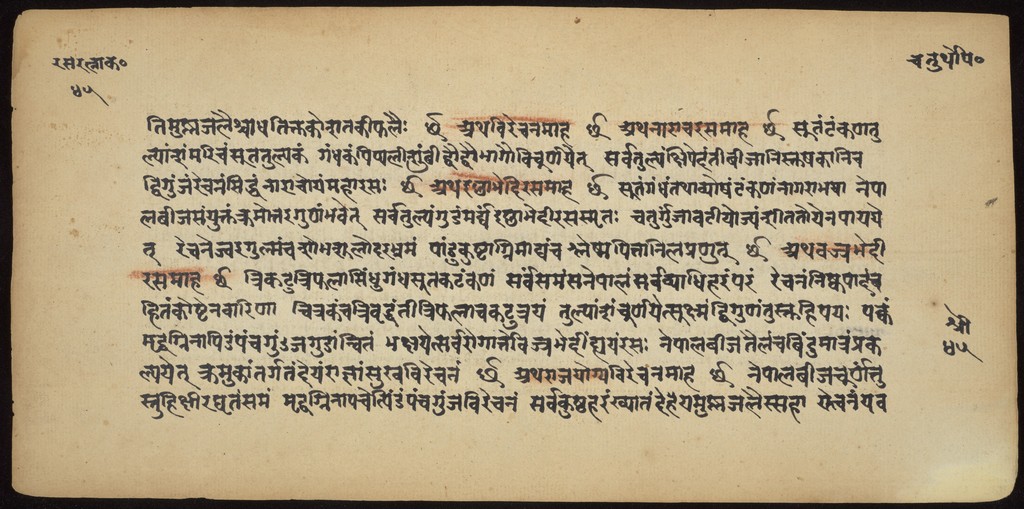 रसरत्नाक०
४५
चतुर्थोपि०
तिमुस्नजलैश्चाथतिक्तकोशातकीफलैः ॥ अथविरेचनमाह ॥ अथनाराचरसमाह ॥ सूतंटंकणतु
ल्यांशंमरिचंसूततुल्यकं गंधकंपिप्पलीशुंठीद्वौद्वौभागौविचूर्णयेत् सर्वतुल्यंक्षिपेद्दंतीबीजानिस्तुषकानिच
द्विगुंजंरेचनंसिद्धंनाराचोयंमहारसः ॥ अथइछाभेदिरसमाह ॥ सूतंगंधंतथाव्योषंटंकणंनागराभया नेपा
लबीजसंयुक्तंक्रमोत्तरगुणंभवेत् सर्वतुल्यंगुडंमर्द्यइछाभेदीरसस्मृतः चतुर्गुंजावटीयोज्यंशीततोयेनपायये
त् रेचनेज्वरगुल्मंचशोथशूलोदरभ्रमं पांडुकुष्टाग्निमांद्यंच श्लेष्मपित्तानिलप्रणुत् ॥ अथवज्रभेदी
रसमाह ॥ त्रिकटुत्रिफलासिंधुगंधसूतकटंकणं सर्वसमंसनेपालंसर्वव्याधिहरंपरं रेचनंनिष्कपादंच
हितंकोष्टेनवारिणा चित्रकंचत्रिवृद्दंतीत्रिफलाचकटुत्रयं तुल्यांशंचूर्णयेत्सूक्ष्मंद्विगुणंतुस्नुहिपयः पक्वं
मृद्वग्निनापिंडंपंचगुंजगुडान्वितं भक्षयेत्सर्वरोगान्नेविज्रभेदीह्ययंरसः नेपालबीजतैलंचबिंदुमात्रंप्रक
ल्पयेत् क्रमुकांतर्गतंदेयंराज्ञांसुखविरेचनं ॥ अथराजयोग्यविरेचनमाह ॥ नेपालबीजचूर्णंतु
स्नुहिक्षीरघृतंसमं मृद्वग्निनापचेत्पिंडंपंचगुंजविरेचनं सर्वकुष्ठहरंख्यातंदेहेयमुस्नजलैस्सहा
श्री
४५